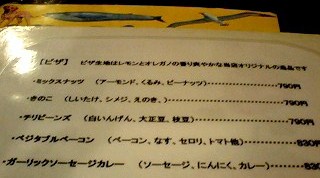 ［ピザ］ ピザ生地はレモンとオレガノの香り爽やかな当店オリジナルの逸品です
・ミックスナッツ （アーモンド、くるみ、ピーナッツ）‥‥‥‥790円
・きのこ （しいたけ、シメジ、えのき、）‥‥‥‥790円
・テリビーンズ （白いんげん、大正豆、枝豆）‥‥‥‥790円
・ベジタブルベーコン （ベーコン、なす、セロリ、トマト他）‥‥‥‥830円
・ガーリックソーセージカレー （ソーセージ、にんにく、カレー）‥‥‥‥830